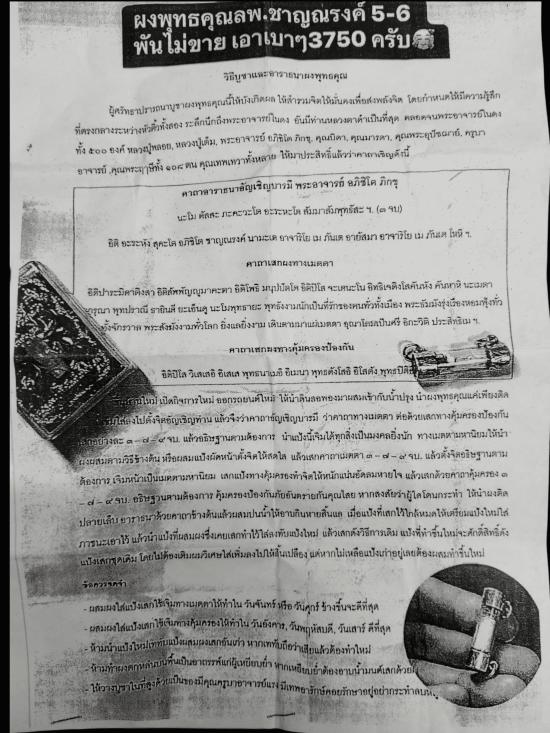 ผงพุทธคุณลพ.ชาญณรงค์ 5-6
พันไม่ขาย เอาเบาๆ3750 ครับ🥰
วิธีบูชาและอาราธนาผงพุทธคุณ
ผู้ศรัทธาปรารถนาบูชาผงพุทธคุณนี้ให้บังเกิดผล ให้สำรวมจิตให้มั่นคงเพื่อส่งพลังจิต โดยกำหนดให้มีความรู้สึก
ที่ตรงกลางระหว่างหัวคิ้วทั้งสอง ระลึกนึกถึงพระอาจารย์ในดง อันมีท่านหลวงตาดำเป็นที่สุด ตลอดจนพระอาจารย์ในดง
ทั้ง ๕๐๐ องค์ หลวงปู่พลอย, หลวงปู่เดิม, พระอาจารย์ อภิชิโต ภิกขุ, คุณบิดา, คุณมารดา, คุณพระอุปัชฌาย์, ครูบา
อาจารย์ ,คุณพระฤาษีทั้ง ๑๐๘ ตน คุณเทพเทวาทั้งหลาย ให้มาประสิทธิ์แล้วว่าคาถาเชิญดังนี้
คาถาอาราธนาอัญเชิญบารมี พระอาจารย์ อภิชิโต ภิกขุ
นะโม ตัสสะ ภะคะวะโต อะระหะโต สัมมาสัมพุทธัสะ ฯ. (๓ จบ)
อิติ อะระหัง สุคะโต อภิชิโต ชาญณรงค์ นามะเต อาจาริโย เม ภันเต อายัสมา อาจาริโย เม ภันเต โหหิ ฯ.
คาถาเสกผงทางเมตตา
อิติปาระมิตาติงสา อิติสัพพัญญูมาคะตา อิติโพธิ มนุปปัตโต อิติปิโส จะเตนะโน อิทธิเจติงโสตันหัง ตันหาหิ นะเมตา
กรุณา พุทปราณี ธายินดี ยะเอ็นดู นะโมพุทธายะ พุทธังงามนักเป็นที่รักของคนทั่วทั้งเมือง พระธัมมังรุ่งเรืองหอมฟุ้งทั่ว
ทั้งจักรวาล พระสังฆังงามทั่วโลก ยิ่งแลยิ่งงาม เดินตามมาแผ่เมตตา
คาถาเสกผงทางคุ้มครองป้องกัน
อิติปิโส วิเสเสอิ อิเสเส พุทธนาเมอิ อิเมนา พุทธตังโสอิ อิโสตัง พุทธปิติอิ
เปิดกิจการใหม่ ออกรถยนต์ใหม่ ให้นำดินสอพองมาผสมเข้ากับน้ำปรุง นำผงพุทธคุณแค่เพียงติด
ใส่ลงไปตั้งจิตอัญเชิญท่าน แล้วจึงว่าคาถาอัญเชิญบารมี ว่าคาถาทางเมตตา ต่อด้วยเสกทางคุ้มครองป้องกัน
เสกอย่างละ ๓ – ๗ – ๙ จบ. แล้วอธิษฐานตามต้องการ นำแป้งนี้เจิมได้ทุกสิ่งเป็นมงคลยิ่งนัก ทางเมตตามหานิยมให้นำ
ผงผสมตามวิธีข้างต้น หรือผสมแป้งผัดหน้าตั้งจิตให้สดใส แล้วเสกคาถาเมตตา ๓ – ๗ – ๙ จบ. แล้วตั้งจิตอธิษฐานตาม
ต้องการ เจิมหน้าเป็นเมตตามหานิยม เสกแป้งทางคุ้มครองทำจิตให้หนักแน่นอัดลมหายใจ แล้วเสกด้วยคาถาคุ้มครอง ๓
– ๗ – ๙ จบ. อธิษฐานตามต้องการ คุ้มครองป้องกันภัยอันตรายกันคุณไสย หากสงสัยว่าผู้ใดโดนกระทำ ให้นำผงติด
ปลายเล็บ อาราธนาด้วยคาถาข้างต้นแล้วผสมปนน้ำให้อาบกินหายสิ้นแล เมื่อแป้งที่เสกไว้ใกล้หมดให้เตรียมแป้งใหม่ใส่
ภาชนะเอาไว้ แล้วนำแป้งที่ผสมผงซึ่งเคยเสกทำไว้ใส่ลงทับแป้งใหม่ แล้วเสกดั่งวิธีการเดิม แป้งที่ทำขึ้นใหม่จะศักดิ์สิทธิ์ดั่ง
แป้งเสกชุดเดิม โดยไม่ต้องเติมผงวิเศษใส่เพิ่มลงไปให้สิ้นเปลือง แต่หากไม่เหลือแป้งเก่าอยู่เลยต้องผสมทำขึ้นใหม่
ข้อควรจดจำ
- ผสมผงใส่แป้งเสกใช้เจิมทางเมตตาให้ทำใน วันจันทร์ หรือ วันศุกร์ ข้างขึ้นจะดีที่สุด
- ผสมผงใส่แป้งเสกใช้เจิมทางคุ้มครองให้ทำใน วันอังคาร, วันพฤหัสบดี, วันเสาร์ ดีที่สุด
- ห้ามนำแป้งใหม่เททับแป้งผสมผงเสกอันเก่า หากเททับถือว่าเสียแล้วต้องทำใหม่
- ห้ามทำผงตกหล่นบนพื้นเป็นอาถรรพ์แก่ผู้เหยียบย่ำ หากเหยียบย่ำต้องอาบน้ำมนต์เสกด้วย
- ให้วางบูชาในที่สูงด้วยเป็นของมีคุณครูบาอาจารย์แรง มีเทพอารักษ์คอยรักษาอยู่อย่ากระทำลบหลู่